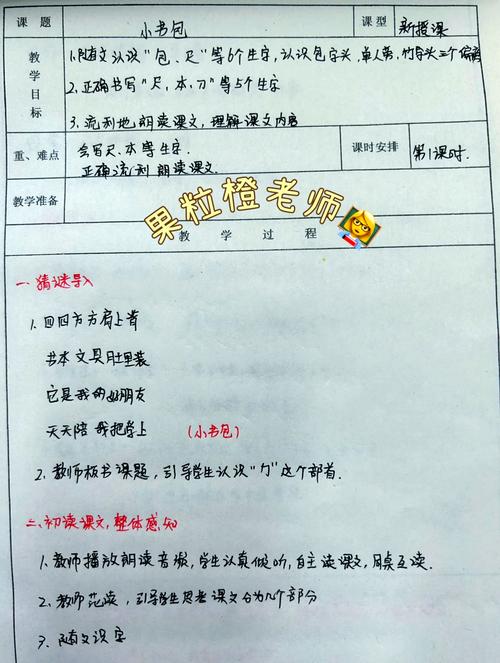 课题 小书包 课型 新授课
教学目标
1.随文认识"包、尺"等6个生字,认识包字头,单人旁,竹字头三个偏旁
2.正确书写"尺,本,刀"等5个生字
3.流利地朗读课文,理解课文内容
重、难点 会写尺、本等生字. 课时安排 第1课时.
正确流利 朗读课文.
教学准备
果粒橙老师
教学过程
一、猜谜导入
1.四四方方肩上背
书本文具肚里装
它是我的好朋友
天天陪我把学上 (小书包)
2.教师板书课题,引导学生认识"勹"这个部首.
二、初读课文,整体感知
1.教师播放朗读音频,学生认真倾听,自主读课文,同桌互读.
2.教师范读,引导学生思考课文分为几个部分
3.随文识字